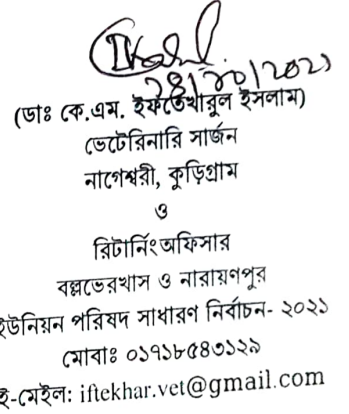 ২৪/১০/২০২১
(ডাঃ কে.এম. ইফতেখারুল ইসলাম)
ভেটেরিনারি সার্জন
নাগেশ্বরী, কুড়িগ্রাম
ও
রিটার্নিংঅফিসার
বল্লভেরখাস ও নারায়ণপুর
ইউনিয়ন পরিষদ সাধারণ নির্বাচন- ২০২১
মোবাঃ ০১৭১৮৫৪৩১২৯
ই-মেইল: iftekhar.vet@gmail.com